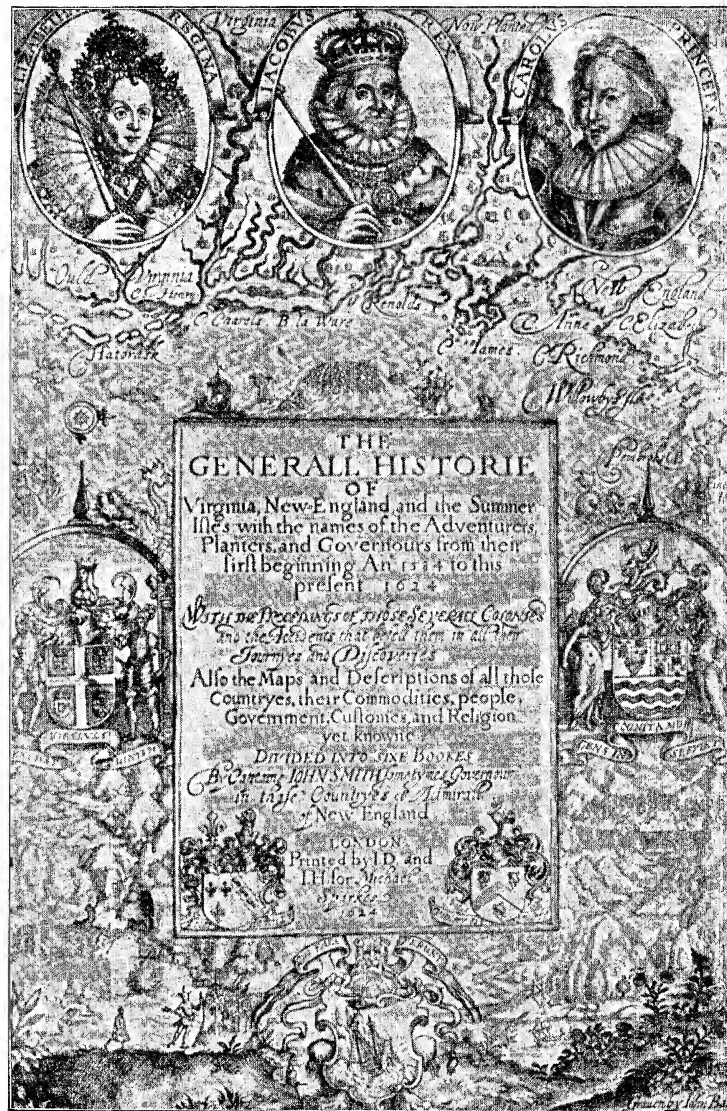 ELIZABETHA REGINA
JACOBVS REX
CAROLVS PRINCEPS
Virginia
Now Planted
Ould Virginia
C. Henry
C. Charels
B la Ware
C. Hatorask
C. James
New England
C. Anne
C. Elizabeth
C. Richmond
THE
GENERALL HISTORIE
OF
Virginia, New-England, and the Summer
Isles with the names of the Adventurers,
Planters, and Governours from their
first beginning An 1584 to this
present 1624
WITH THE PROCEEDINGS OF THOSE SEVERALL COLONIES
and the Accidents that befell them in all their
Journyes and Discoveries
Also the Maps and Descriptions of all those
Countryes, their Commodities, people,
Government, Customes, and Religion
yet knowne
DIVIDED INTO SIXE BOOKES
By Captaine IOHN SMITH sometymes Governour
in those Countryes & Admirall
of New England
LONDON
Printed by I.D. and
I.H. for Michael
Sparkes
1624
GENS IN